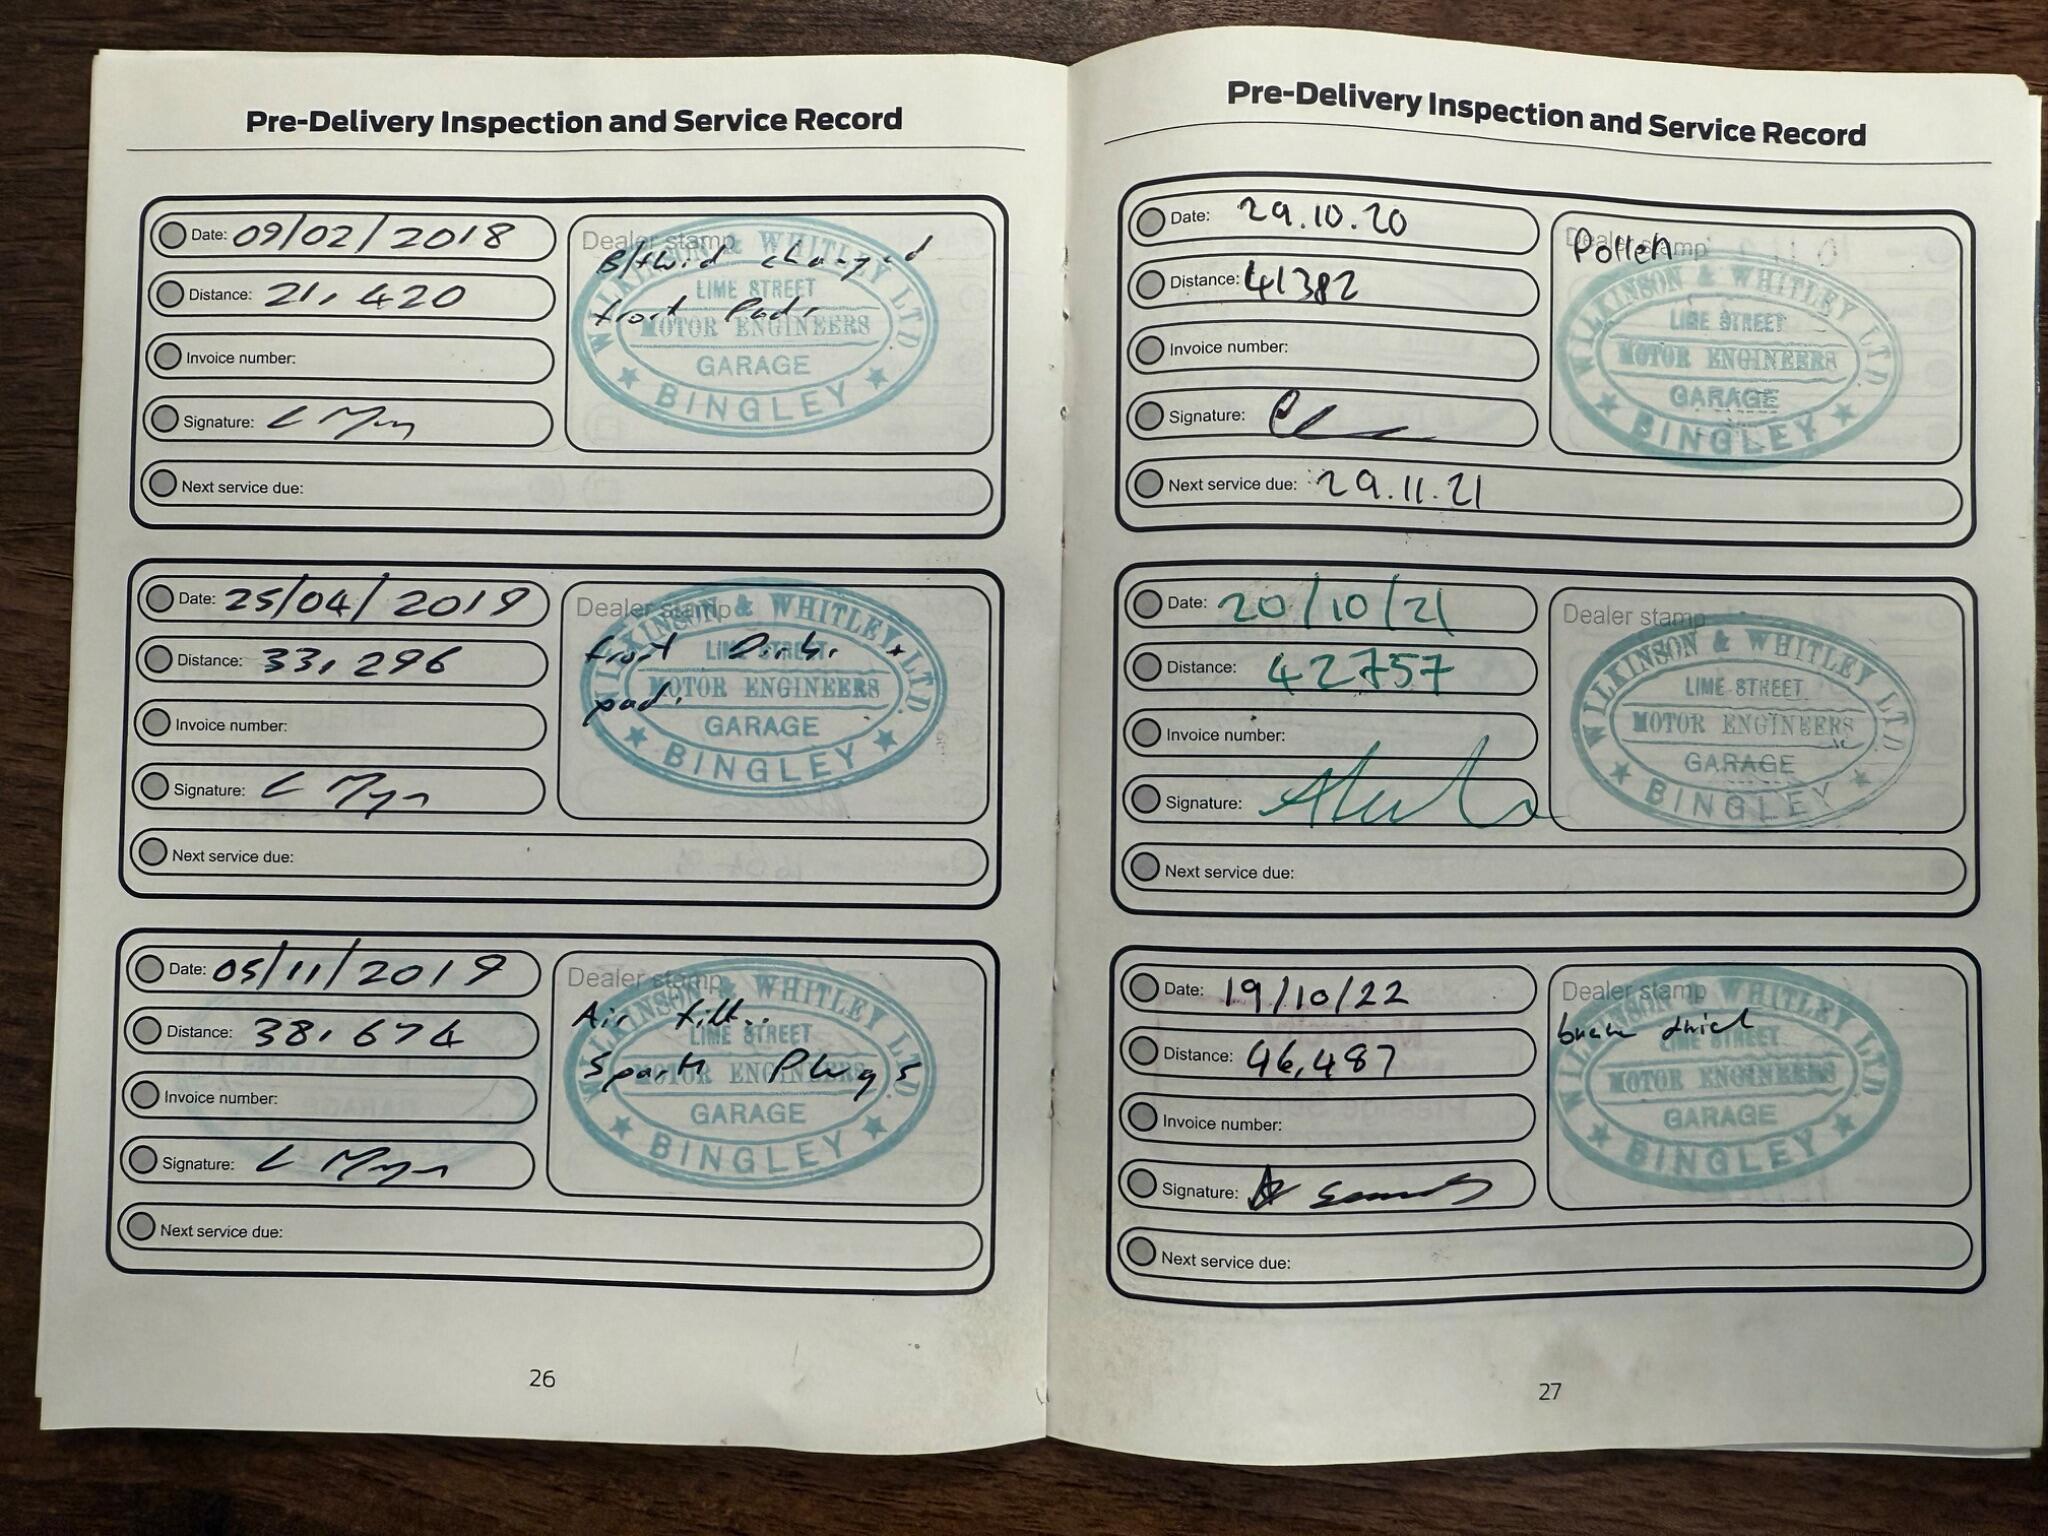 Pre-Delivery Inspection and Service Record
Date: 09/02/2018
Distance: 21,420
Invoice number:
Signature:
Next service due:
Dealer stamp
B/fluid changed
front Pads
WILKINSON & WHITLEY LTD.
LIME STREET
MOTOR ENGINEERS
GARAGE
★ BINGLEY ★
Date: 25/04/2019
Distance: 33,296
Invoice number:
Signature:
Next service due:
Dealer stamp
front Discs +
pads
WILKINSON & WHITLEY LTD.
LIME STREET
MOTOR ENGINEERS
GARAGE
★ BINGLEY ★
Date: 05/11/2019
Distance: 38,674
Invoice number:
Signature:
Next service due:
Dealer stamp
Air filter
Spark Plugs
WILKINSON & WHITLEY LTD.
LIME STREET
MOTOR ENGINEERS
GARAGE
★ BINGLEY ★
26
Pre-Delivery Inspection and Service Record
Date: 29.10.20
Distance: 41382
Invoice number:
Signature:
Next service due: 29.11.21
Dealer stamp
Pollen
WILKINSON & WHITLEY LTD.
LIME STREET
MOTOR ENGINEERS
GARAGE
★ BINGLEY ★
Date: 20/10/21
Distance: 42757
Invoice number:
Signature:
Next service due:
Dealer stamp
WILKINSON & WHITLEY LTD.
LIME STREET
MOTOR ENGINEERS
GARAGE
★ BINGLEY ★
Date: 19/10/22
Distance: 46,487
Invoice number:
Signature:
Next service due:
Dealer stamp
WILKINSON & WHITLEY LTD.
LIME STREET
MOTOR ENGINEERS
GARAGE
★ BINGLEY ★
27